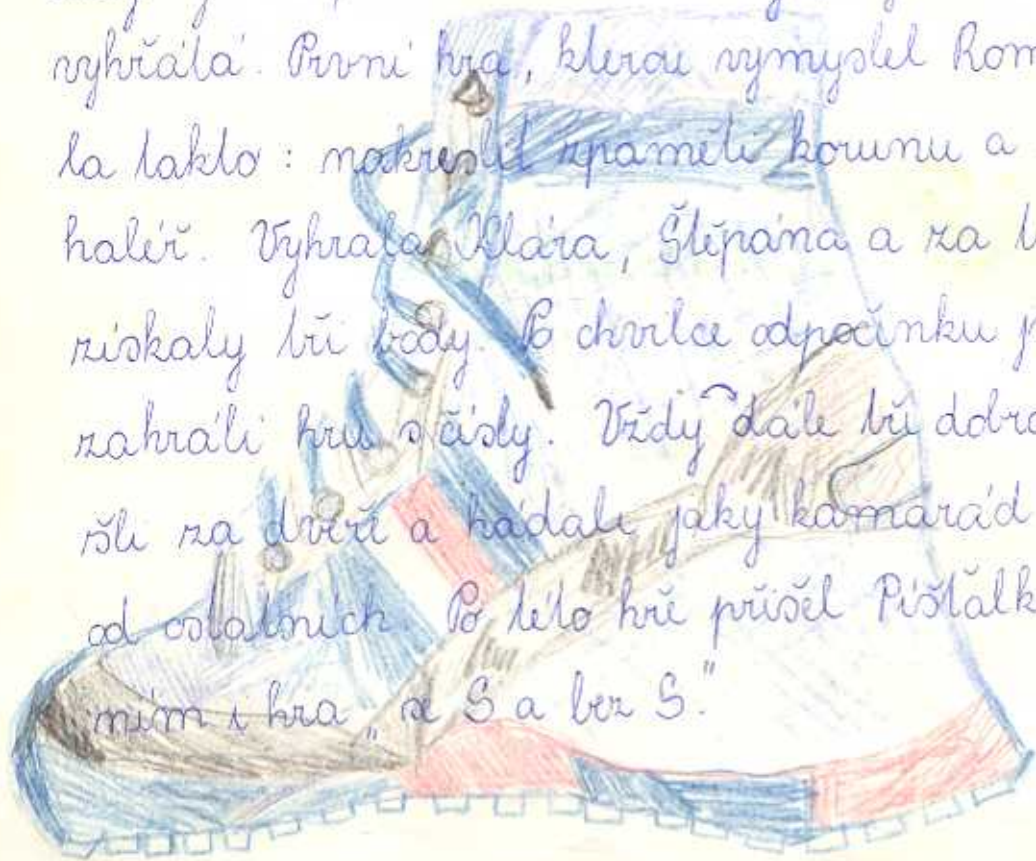 vyhřála. První hra, kterou vymyslel Rom
la takto: nakreslit zpaměti korunu a
haléř. Vyhrála Klára, Štěpána a za t
získaly tři body. Po chvilce odpočinku j
zahráli hru s čísly. Vždy dále tři dobro
šli za dveře a hádali jaky kamarád
od ostatních Po této hře přišel Píšťalk
ním i hra „se S a bez S."